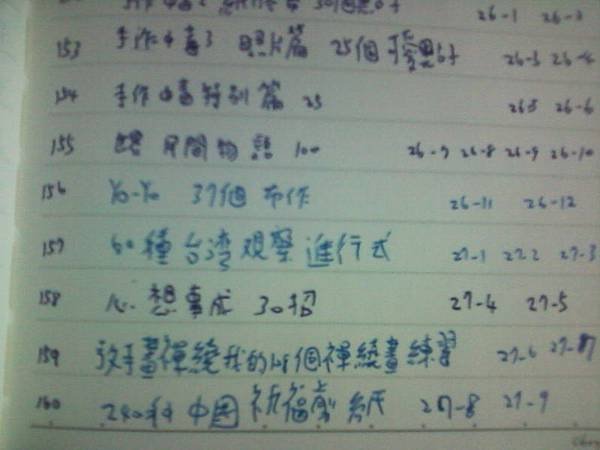 26-1 26-2
153 手作中毒3 照片篇 25個 26-3 26-4
154 手作中毒特別篇 25 26-5 26-6
155 民間物語 100 26-7 26-8 26-9 26-10
156 Yo-Yo 37個 布作 26-11 26-12
157 60種台湾观察進行式 27-1 27-2 27-3
158 心想事成 30招 27-4 27-5
159 放手畫禪繞我的48個禪繞畫練習 27-6 27-7
160 240种中国祈福剪紙 27-8 27-9